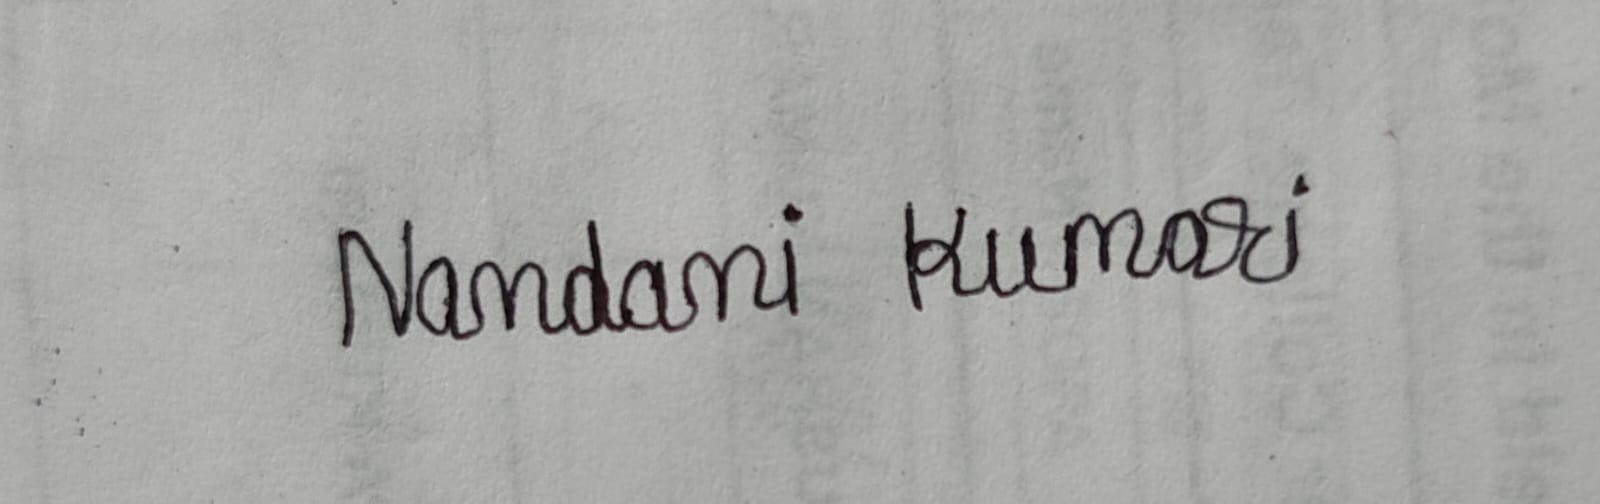 Nandani Kumari